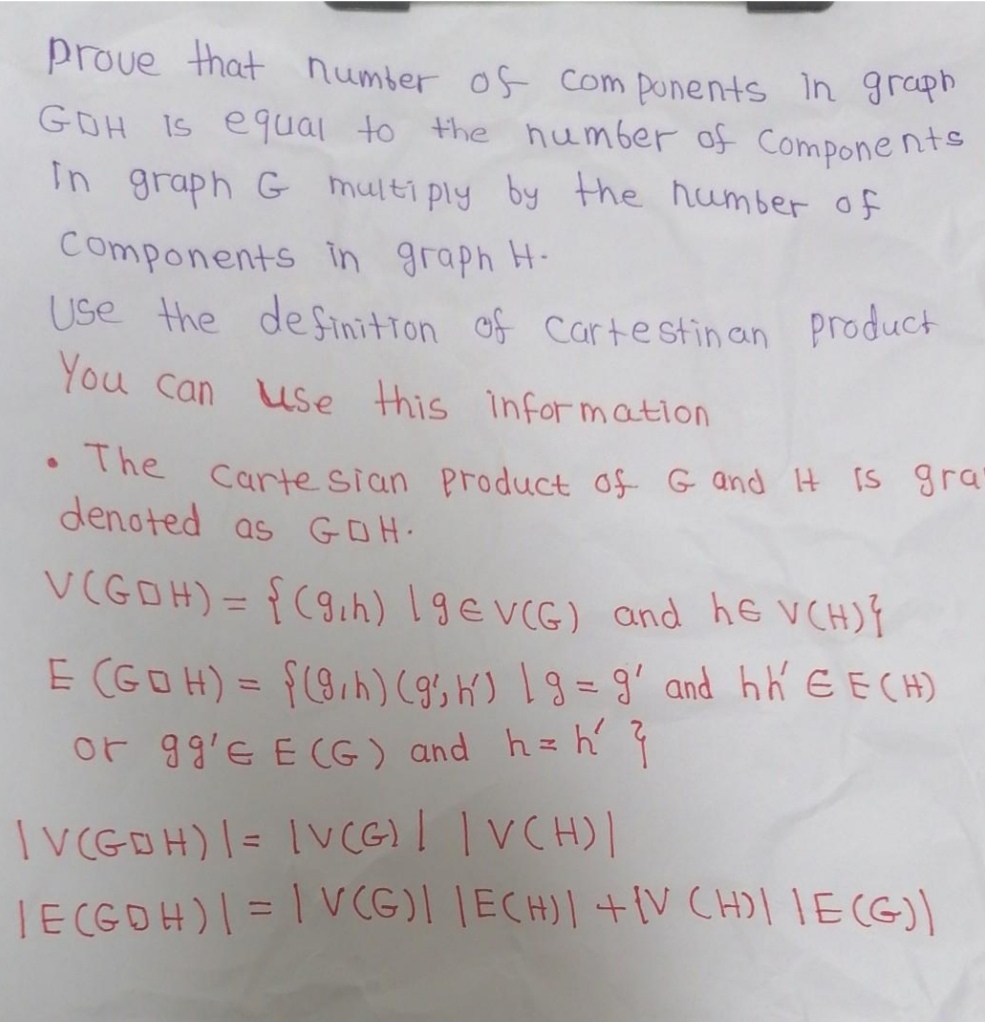 Prove that number of components in graph
G□H is equal to the number of components
in graph G multiply by the number of
components in graph H.
Use the definition of cartestinan product
You can use this information
• The cartesian product of G and H is gra
denoted as G□H.
V(G□H) = {(g,h) | g ∈ V(G) and h ∈ V(H)}
E (G□H) = {(g,h)(g',h') | g = g' and hh' ∈ E(H)
or gg' ∈ E(G) and h = h' }
|V(G□H)| = |V(G)| |V(H)|
|E(G□H)| = |V(G)| |E(H)| + |V(H)| |E(G)|